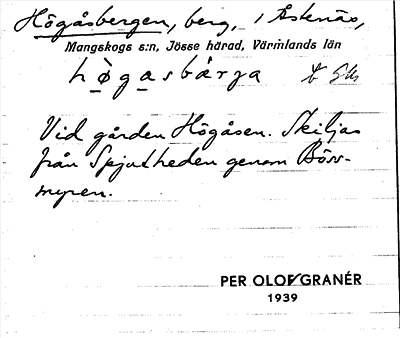 Högåsbergen, berg, i Åskenäs,
Mangskogs s:n, Jösse härad, Värmlands län
hø̱ga̱sbärja
Vid gården Högåsen. Skiljas
från Spjutheden genom Böss-
myren.
PER OLOF GRANÉR
1939